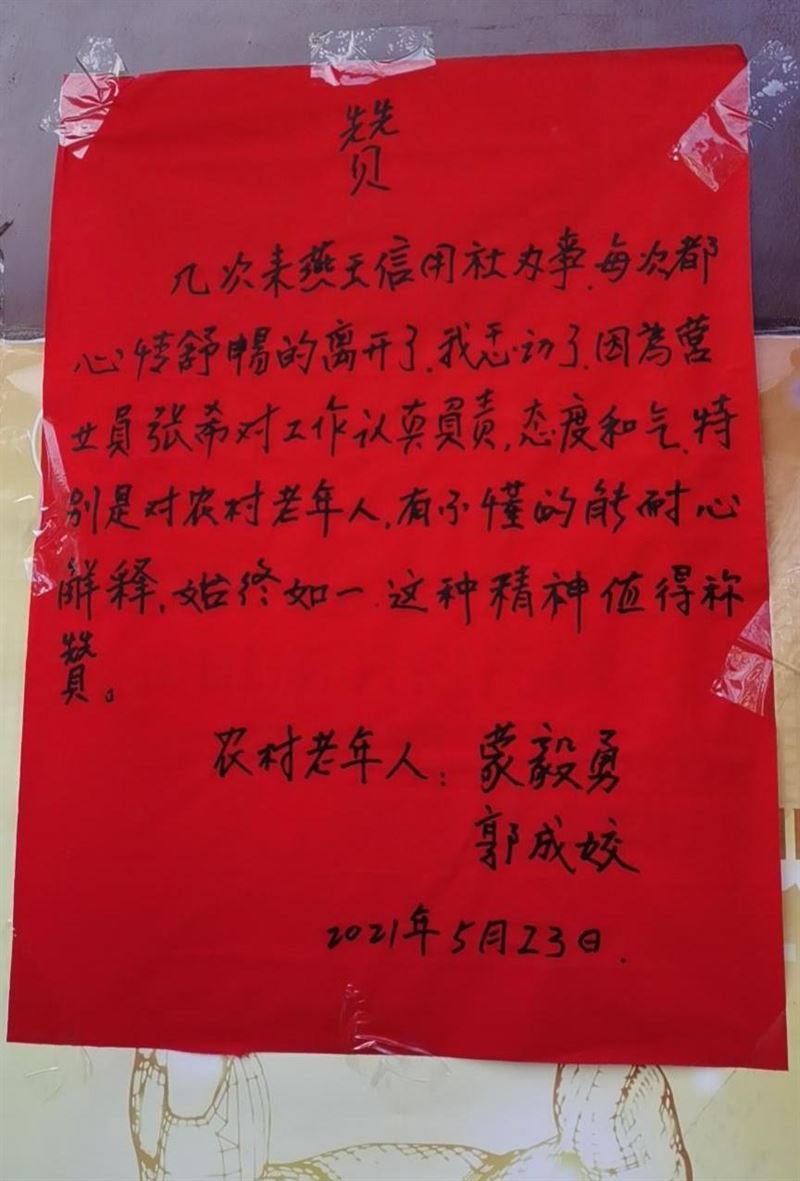 赞
几次来燕王信用社办事.每次都
心情舒暢的离开了.我感动了.因為营
业員张希对工作认真負责,态度和气.特
别是对农村老年人,有不懂的能耐心
解释,始终如一.这种精神值得称
赞。
农村老年人:蒙毅勇
郭成姣
2021年5月23日.